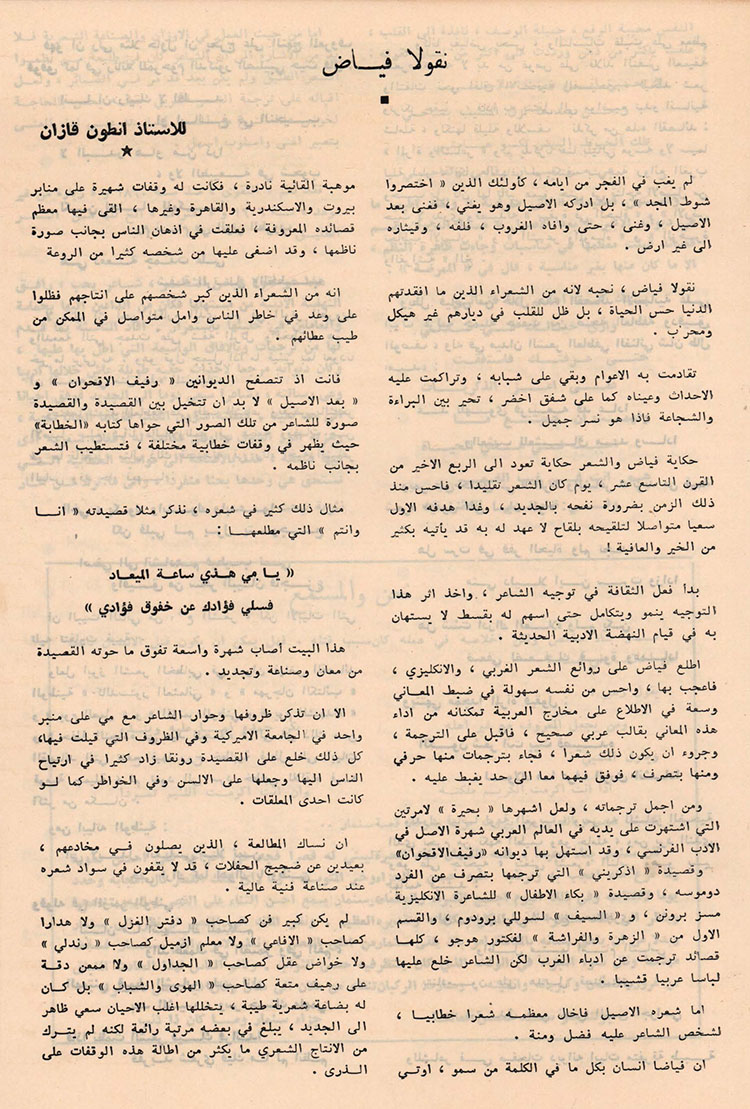 نقولا فيـــاض
للاستاذ انطون قازان
لم يغب في الفجر من ايامه ، كأولئك الذين « اختصروا
شوط المجد » ، بل ادركه الاصيل وهو يغني ، فغنى بعد
الاصيل ، وغنى ، حتى وافاه الغروب ، فلفه ، وقيثاره
الى غير ارض .
نقولا فياض ، نحبه لانه من الشعراء الذين ما افقدتهم
الدنيا حس الحياة ، بل ظل للقلب في ديارهم غير هيكل
ومحراب .
تقادمت به الاعوام وبقي على شبابه ، وتراكمت عليه
الاحداث وعيناه كما على شفق اخضر ، تحير بين البراءة
والشجاعة فاذا هو نسر جميل .
حكاية فياض والشعر حكاية تعود الى الربع الاخير من
القرن التاسع عشر ، يوم كان الشعر تقليدا ، فاحس منذ
ذلك الزمن بضرورة نفحه بالجديد ، وغدا هدفه الاول
سعيا متواصلا لتلقيحه بلقاح لا عهد له به قد يأتيه بكثير
من الخير والعافية !
بدأ فعل الثقافة في توجيه الشاعر ، واخذ اثر هذا
التوجيه ينمو ويتكامل حتى اسهم له بقسط لا يستهان
به في قيام النهضة الادبية الحديثة .
اطلع فياض على روائع الشعر الغربي ، والانكليزي ،
فاعجب بها ، واحس من نفسه سهولة في ضبط المعــاني
وسعة في الاطلاع على مخارج العربية تمكنانه من اداء
هذه المعاني بقالب عربي صحيح ، فاقبل على الترجمة ،
وجروء ان يكون ذلك شعرا ، فجاء بترجمات منها حرفي
ومنها بتصرف ، فوفق فيهما معا الى حد يغبط عليه .
ومن اجمل ترجماته ، ولعل اشهرها « بحيرة » لامرتين
التي اشتهرت على يديه في العالم العربي شهرة الاصل في
الادب الفرنسي ، وقد استهل بها ديوانه «رفيف‌الاقحوان»
وقصيدة « اذكريني » التي ترجمها بتصرف عن الفرد
دوموسه ، وقصيدة « بكاء الاطفال » للشاعرة الانكليزية
مسز برونن ، و « السيف » لسوللي برودوم ، والقسم
الاول من « الزهرة والفراشة » لفكتور هوجو ، كلهــا
قصائد ترجمت عن ادباء الغرب لكن الشاعر خلع عليها
لباسا عربيا قشيبا .
اما شعره الاصيل فاخال معظمــه شعرا خطابيــا ،
لشخص الشاعر عليه فضل ومنة .
ان فياضا انسان بكل ما في الكلمة من سمو ، أوتــي
موهبة القائية نادرة ، فكانت له وقفات شهيرة على منابر
بيروت والاسكندرية والقاهرة وغيرها ، القى فيها معظم
قصائده المعروفة ، فعلقت في اذهان الناس بجانب صورة
ناظمها ، وقد اضفى عليها من شخصه كثيرا من الروعة
انه من الشعراء الذين كبر شخصهم على انتاجهم فظلوا
على وعد في خاطر الناس وامل متواصل في الممكن من
طيب عطائهم .
فانت اذ تتصفح الديوانين « رفيف الاقحوان » و
« بعد الاصيل » لا بد ان تتخيل بين القصيدة والقصيدة
صورة للشاعر من تلك الصور التي حواها كتابه «الخطابة»
حيث يظهر في وقفات خطابية مختلفة ، فتستطيب الشعر
بجانب ناظمه .
مثال ذلك كثير في شعره ، نذكر مثلا قصيدته « انــا
وانتم » التي مطلعهــا :
« يــا مي هــذي ساعة الميعــاد
فسلي فؤادك عن خفوق فؤادي »
هذا البيت أصاب شهرة واسعة تفوق ما حوته القصيدة
من معان وصناعة وتجديد .
الا ان تذكر ظروفها وحوار الشاعر مع مي على منبر
واحد في الجامعة الاميركية وفي الظروف التي قيلت فيها،
كل ذلك خلع على القصيدة رونقا زاد كثيرا في ارتياح
الناس اليها وجعلها على الالسن وفي الخواطر كما لــو
كانت احدى المعلقات .
ان نساك المطالعة ، الذين يصلون فــي مخادعهم ،
بعيدين عن ضجيج الحفلات ، قد لا يقفون في سواد شعره
عند صناعة فنية عالية .
لم يكن كبير فن كصاحب « دفتر الغزل » ولا هدارا
كصاحب « الافاعي » ولا معلم ازميل كصاحب « رندلي »
ولا خواض عقل كصاحب « الجداول » ولا ممعن دقــة
على رهيف متعة كصاحب « الهوى والشباب » بل كــان
له بضاعة شعرية طيبة ، يتخللها اغلب الاحيان سعي ظاهر
الى الجديد ، يبلغ في بعضه مرتبة رائعة لكنه لم يتــرك
من الانتاج الشعري ما يكثر من اطالة هذه الوقفات على
الــذرى .